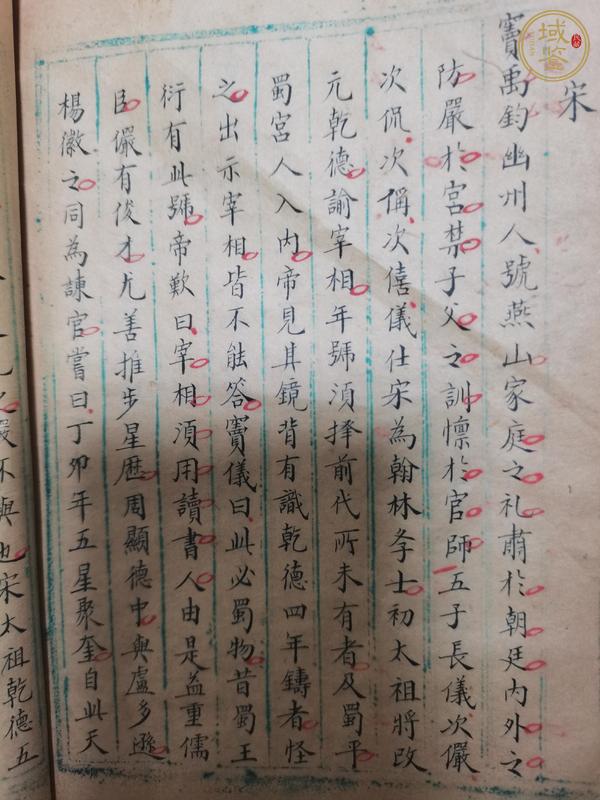 宋
竇禹鈞幽州人號燕山家庭之礼肅於朝廷內外之
防嚴於宮禁子父之訓懔於官師五子長儀次儼
次侃次偁次僖儀仕宋為翰林孝士初太祖將改
元乾德諭宰相年號須择前代所未有者及蜀平
蜀宮人入內帝見其鏡背有識乾德四年鑄者怪
之出示宰相皆不能答竇儀曰此必蜀物昔蜀王
衍有此號帝歎曰宰相須用讀書人由是益重儒
臣儼有俊才尤善推步星歴周顯德中與盧多遜
楊徽之同為諫官嘗曰丁卯年五星聚奎自此天
也宋太祖乾德五
域鑒